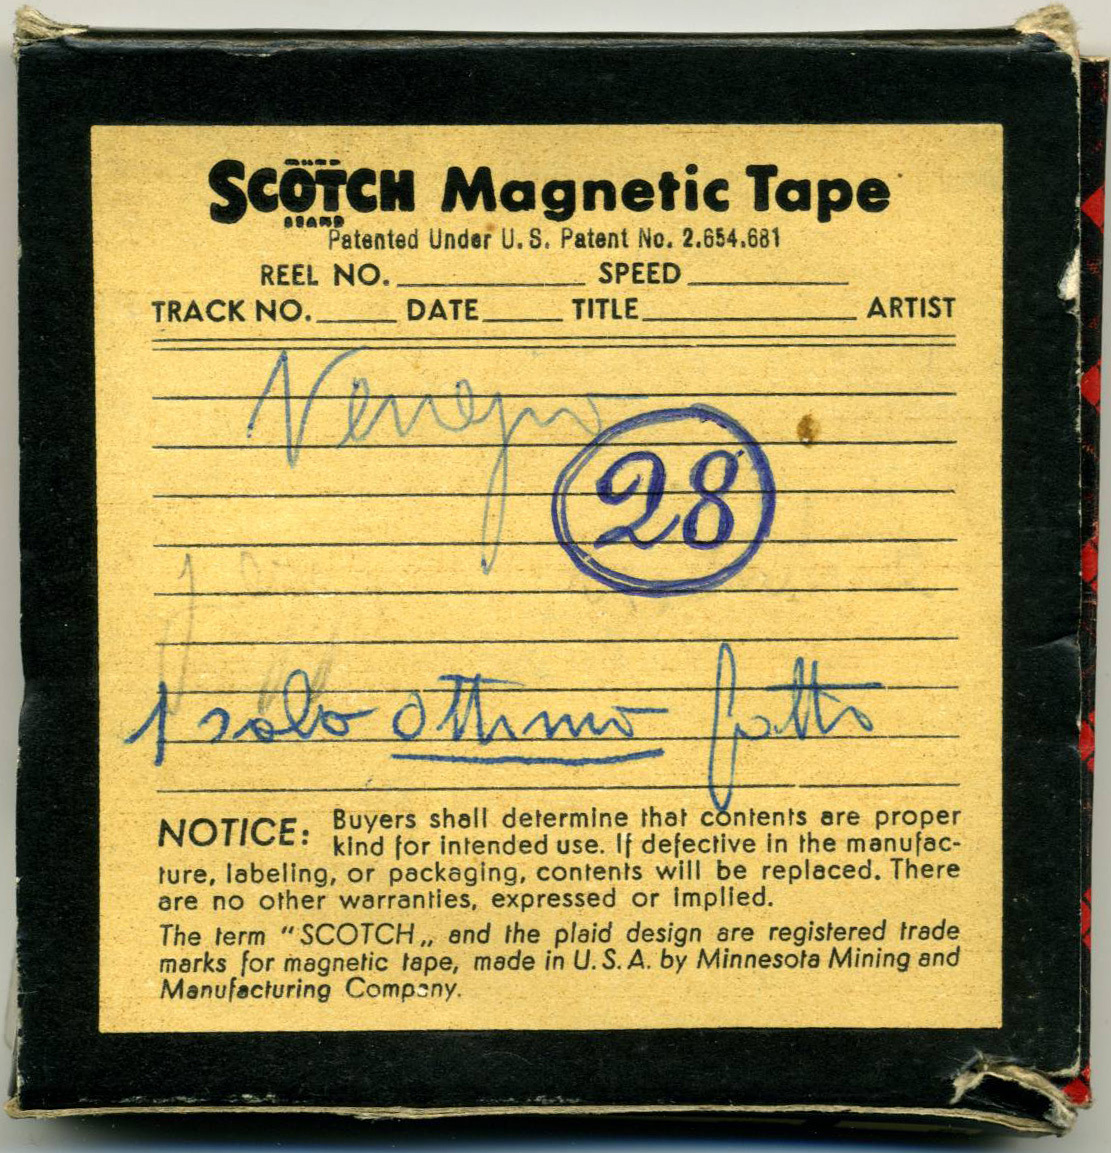 SCOTCH Magnetic Tape
BRAND
Patented Under U.S. Patent No. 2.654.681
REEL NO. SPEED
TRACK NO. DATE TITLE ARTIST
28
1 solo ottimo fatto
NOTICE: Buyers shall determine that contents are proper
kind for intended use. If defective in the manufac-
ture, labeling, or packaging, contents will be replaced. There
are no other warranties, expressed or implied.
The term "SCOTCH„ and the plaid design are registered trade
marks for magnetic tape, made in U.S.A. by Minnesota Mining and
Manufacturing Company.